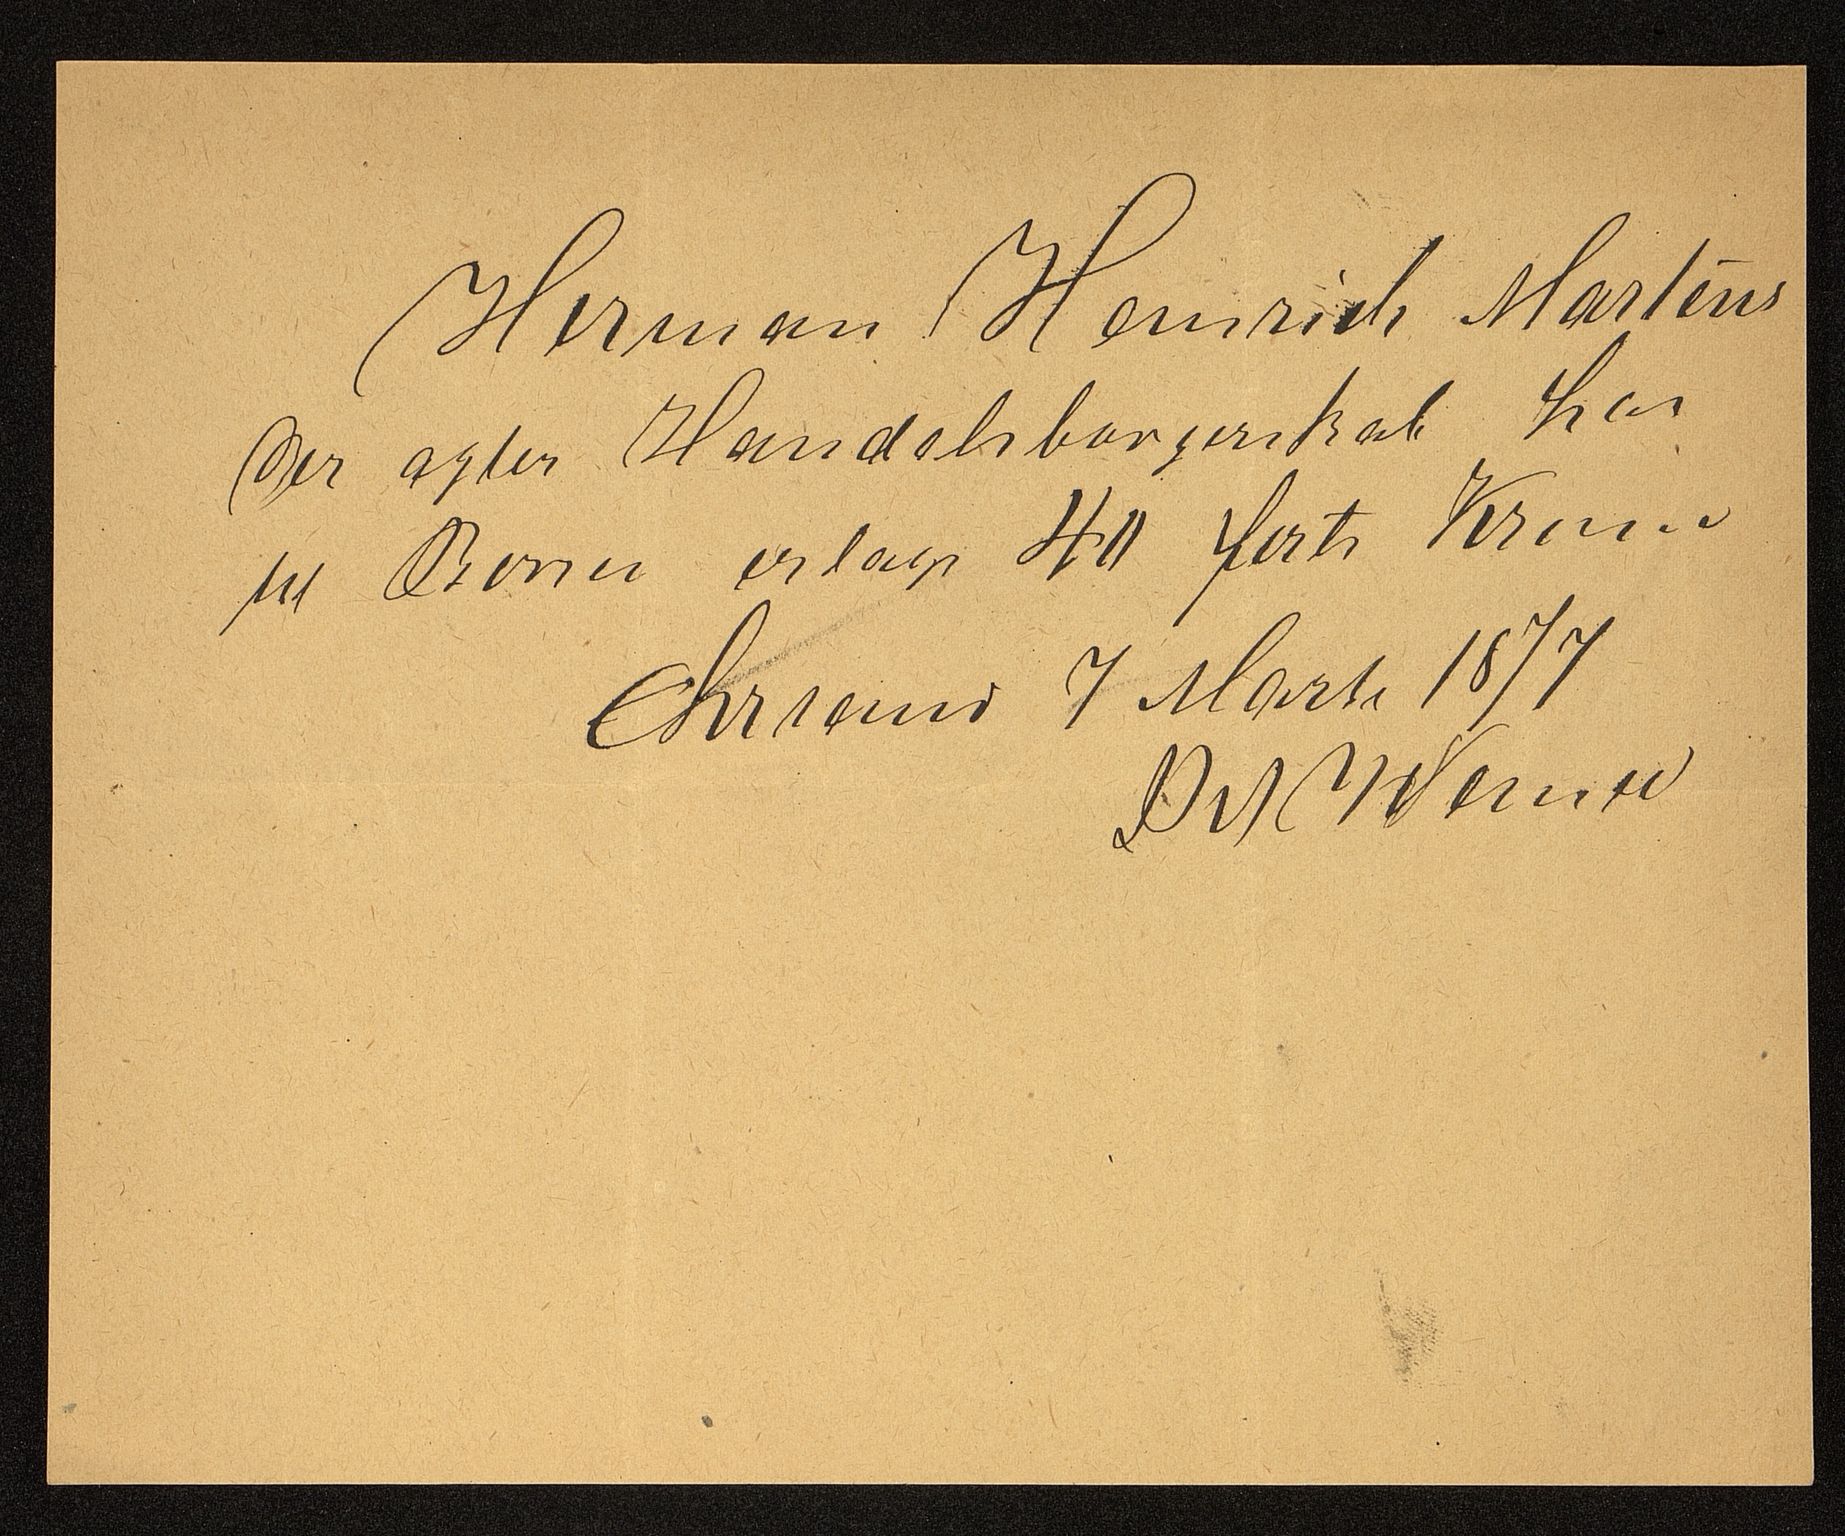 Herman Heinrich Martens
der agter Handelsborgerskab har
til Byen erlagt 40 forti Kroner
Chrsand 7 Marts 1877